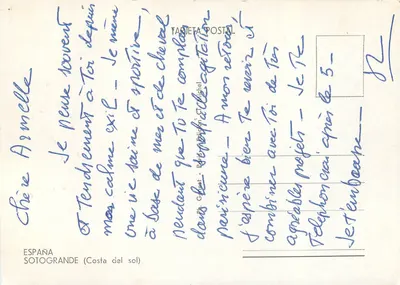 TARJETA POSTAL
Chère Armelle
Je pense souvent
et tendrement à Toi depuis
mon calme exil - Je mène
une vie saine et sportive,
à base de mer et de cheval
pendant que Tu te complais
dans la superficielle agitation
parisienne - A mon retour
j'espère bien Te revoir et
combiner avec Toi de Très
agréables projets - Je Te
Téléphonerai après le 5 -
Je t'embrasse -
ESPAÑA
SOTOGRANDE (Costa del sol)